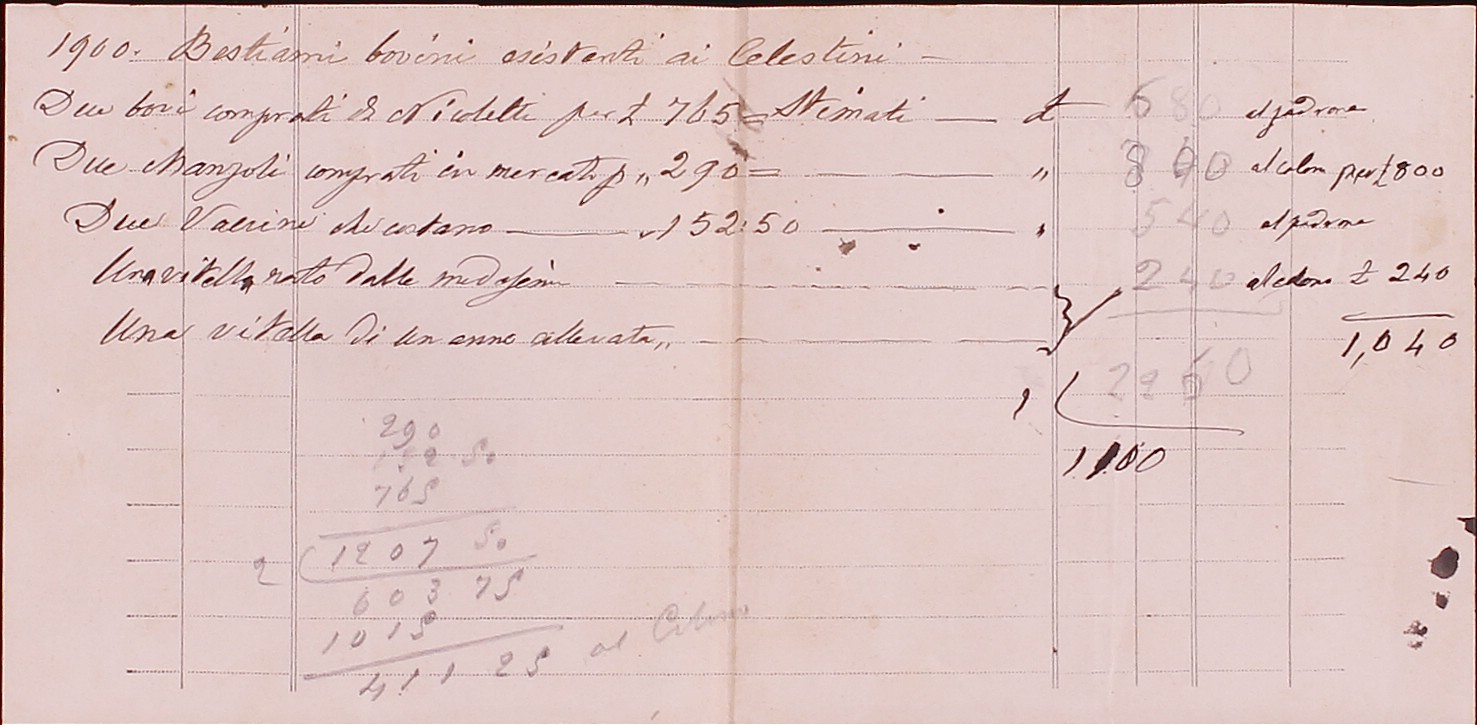 1900. Bestiami bovini esistenti ai Celestini —
Due bovi comprati da Nicoletti per £ 765 = Stimati — £ 680 al padrone
Due Manzoli comprati in mercato p „ 290 = — „ 800 al colono per £ 800
Due Vaccine che costano — „ 152:50 — „ 540 al padrone
Una vitella nata dalle medesime — 240 al colono £ 240
Una vitella di un anno allevata „ — 1,040
2260
1100
290
152 50
765
1207 50
2
603 75
1015
411 25 al Colono